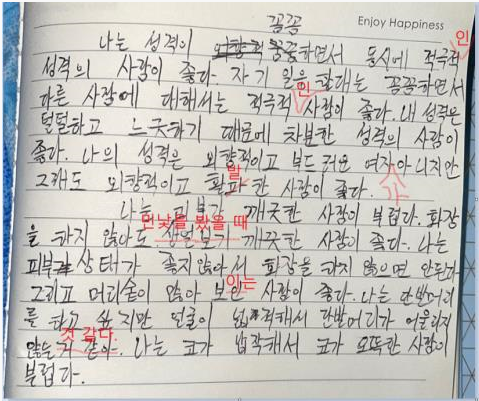 Enjoy Happiness
꼼꼼
인
나는 성격이 외향적 꼼꼼하면서 동시에 적극적
성격의 사람이 좋다. 자기 일을 할때는 꼼꼼하면서
인
다른 사람에 대해서는 적극적 사람이 좋다. 내 성격은
털털하고 느긋하기 때문에 차분한 성격의 사람이
좋다. 나의 성격은 외향적이고 부드러운 여자아니지만
발
그래도 외향적이고 활파한 사람이 좋다.
나는 피부가 깨끗한 사람이 부럽다. 화장
민낯을 봤을 때
을 하지 않아도 깨끗한 사람이 좋다. 나는
피부 상태가 좋지않아서 화장을 하지 않으면 안된다
이는
그리고 머리숱이 많아 보인 사람이 좋다. 나는 단발머리
를 하고 싶지만 얼굴이 넙적해서 단발머리가 어울리지
것 같다.
않는거 같아. 나는 코가 납작해서 코가 오똑한 사람이
부럽다.